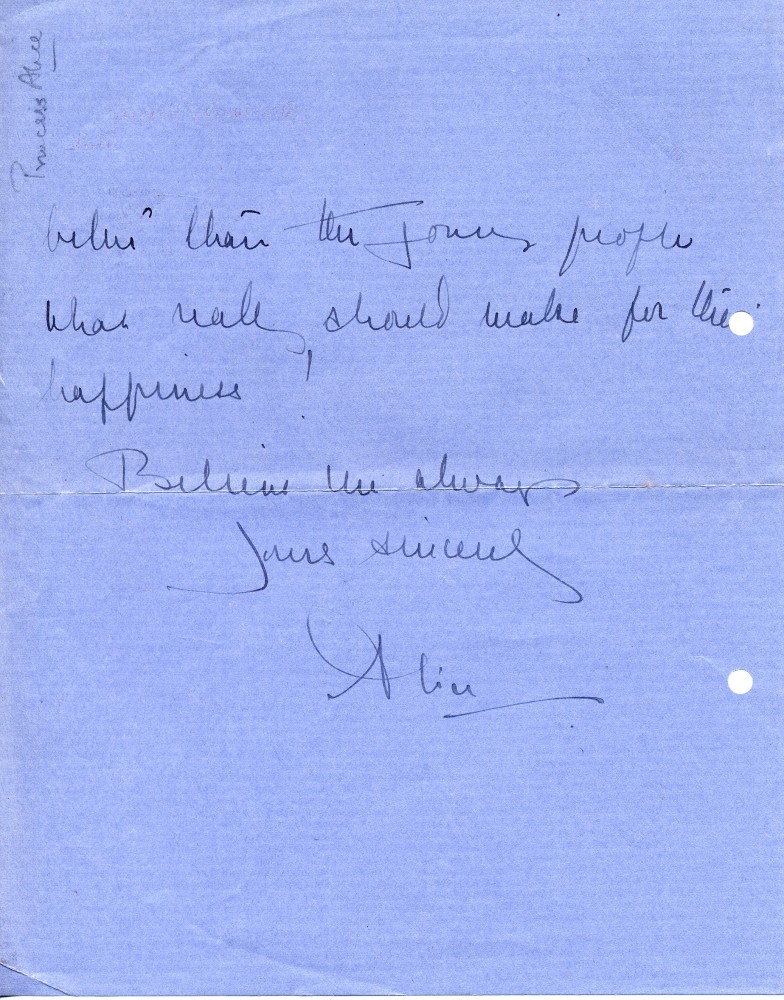 Princess Alice
better than the young people
what really should make for their
happiness!
Believe me always
Yours sincerely
Alice